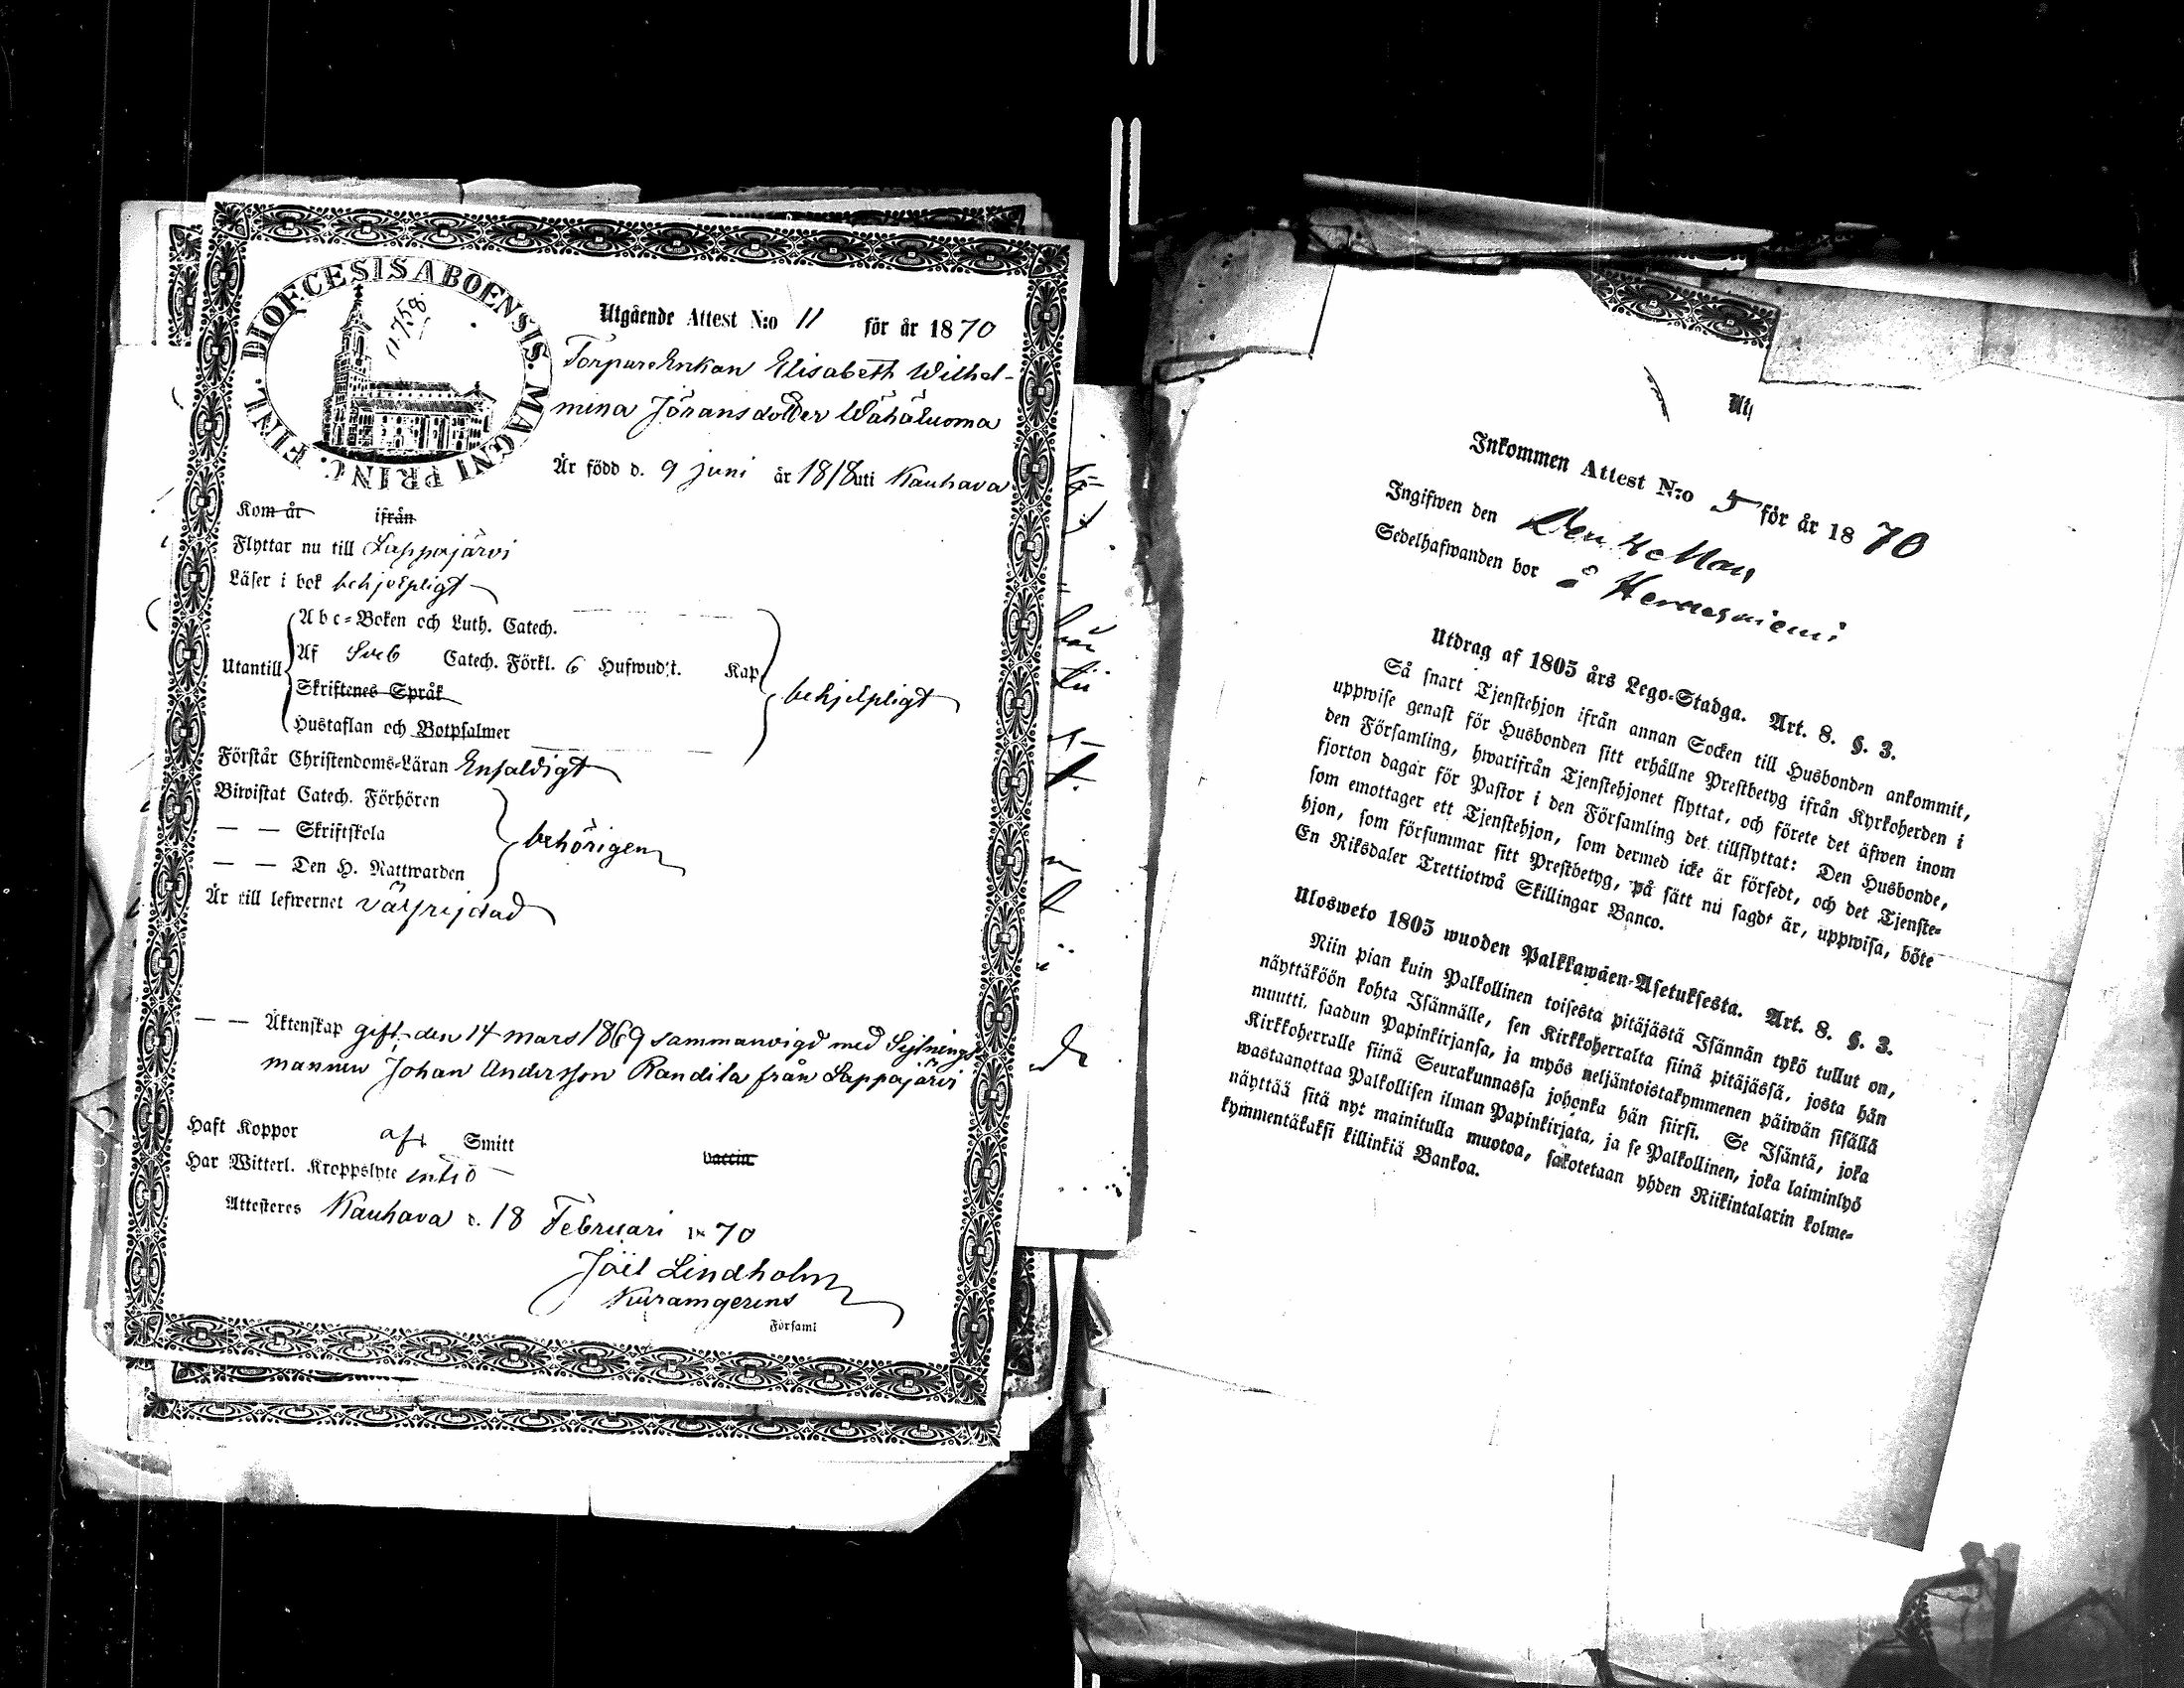 DIOECESIS ABOENSIS. MAGNI PRINC. FINL.
11.758
Utgående Attest N:o 11 för år 1870
Torpare Enkan Elisabeth Wilhel-
mina Jöransdotter Wähäluoma
Är född d. 9 juni år 1818 uti Kauhava
Kom år ifrån
Flyttar nu till Lappojärvi
Läser i bok behjelpligt
Abc-Boken och Luth. Catech.
Utantill Af Sveb Catech. Förkl. 6 Hufwudst. Kap
Skriftenes Språk
Hustaflan och Botpsalmer
behjelpligt
Förstår Christendoms-Läran Enfaldigt
Biwistat Catech. Förhören
— — Skriftskola
— — Den H. Nattwarden
behörigen
Är till lefwernet välfrejdad
— — Äktenskap gift, den 14 mars 1869 sammanvigd med
mannen Johan Andersson Randila från Lappojärvi
Haft Koppor af Smitt vaccin
Har Witterl. Kroppslyte intet
Attesteres Kauhava d. 18 Februari 1870
Joël Lindholm
Församl
Ut
Inkommen Attest N:o 5 för år 1870
Ingifwen den Den 4 Maj
Sedelhafwanden bor å Hernesniemi
Utdrag af 1805 års Lego-Stadga. Art. 8. §. 3.
Så snart Tjenstehjon ifrån annan Socken till Husbonden ankommit,
uppwise genast för Husbonden sitt erhållne Prestbetyg ifrån Kyrkoherden i
den Församling, hwarifrån Tjenstehjonet flyttat, och förete det äfwen inom
fjorton dagar för Pastor i den Församling det tillflyttat: Den Husbonde,
som emottager ett Tjenstehjon, som dermed icke är försedt, och det Tjenste-
hjon, som försummar sitt Prestbetyg, på sätt nu sagdt är, uppwisa, böte
En Riksdaler Trettiotwå Skillingar Banco.
Ulosweto 1805 wuoden Palkkawäen-Asetuksesta. Art. 8. §. 3.
Niin pian kuin Palkollinen toisesta pitäjästä Isännän tykö tullut on,
näyttäköön kohta Isännälle, sen Kirkkoherralta siinä pitäjässä, josta hän
muutti, saadun Papinkirjansa, ja myös neljäntoistakymmenen päiwän sisällä
Kirkkoherralle siinä Seurakunnassa johonka hän siirsi. Se Isäntä, joka
wastaanottaa Palkollisen ilman Papinkirjata, ja se Palkollinen, joka laiminlyö
näyttää sitä nyt mainitulla muotoa, sakotetaan yhden Riikintalarin kolme-
kymmentäkaksi killinkiä Bankoa.